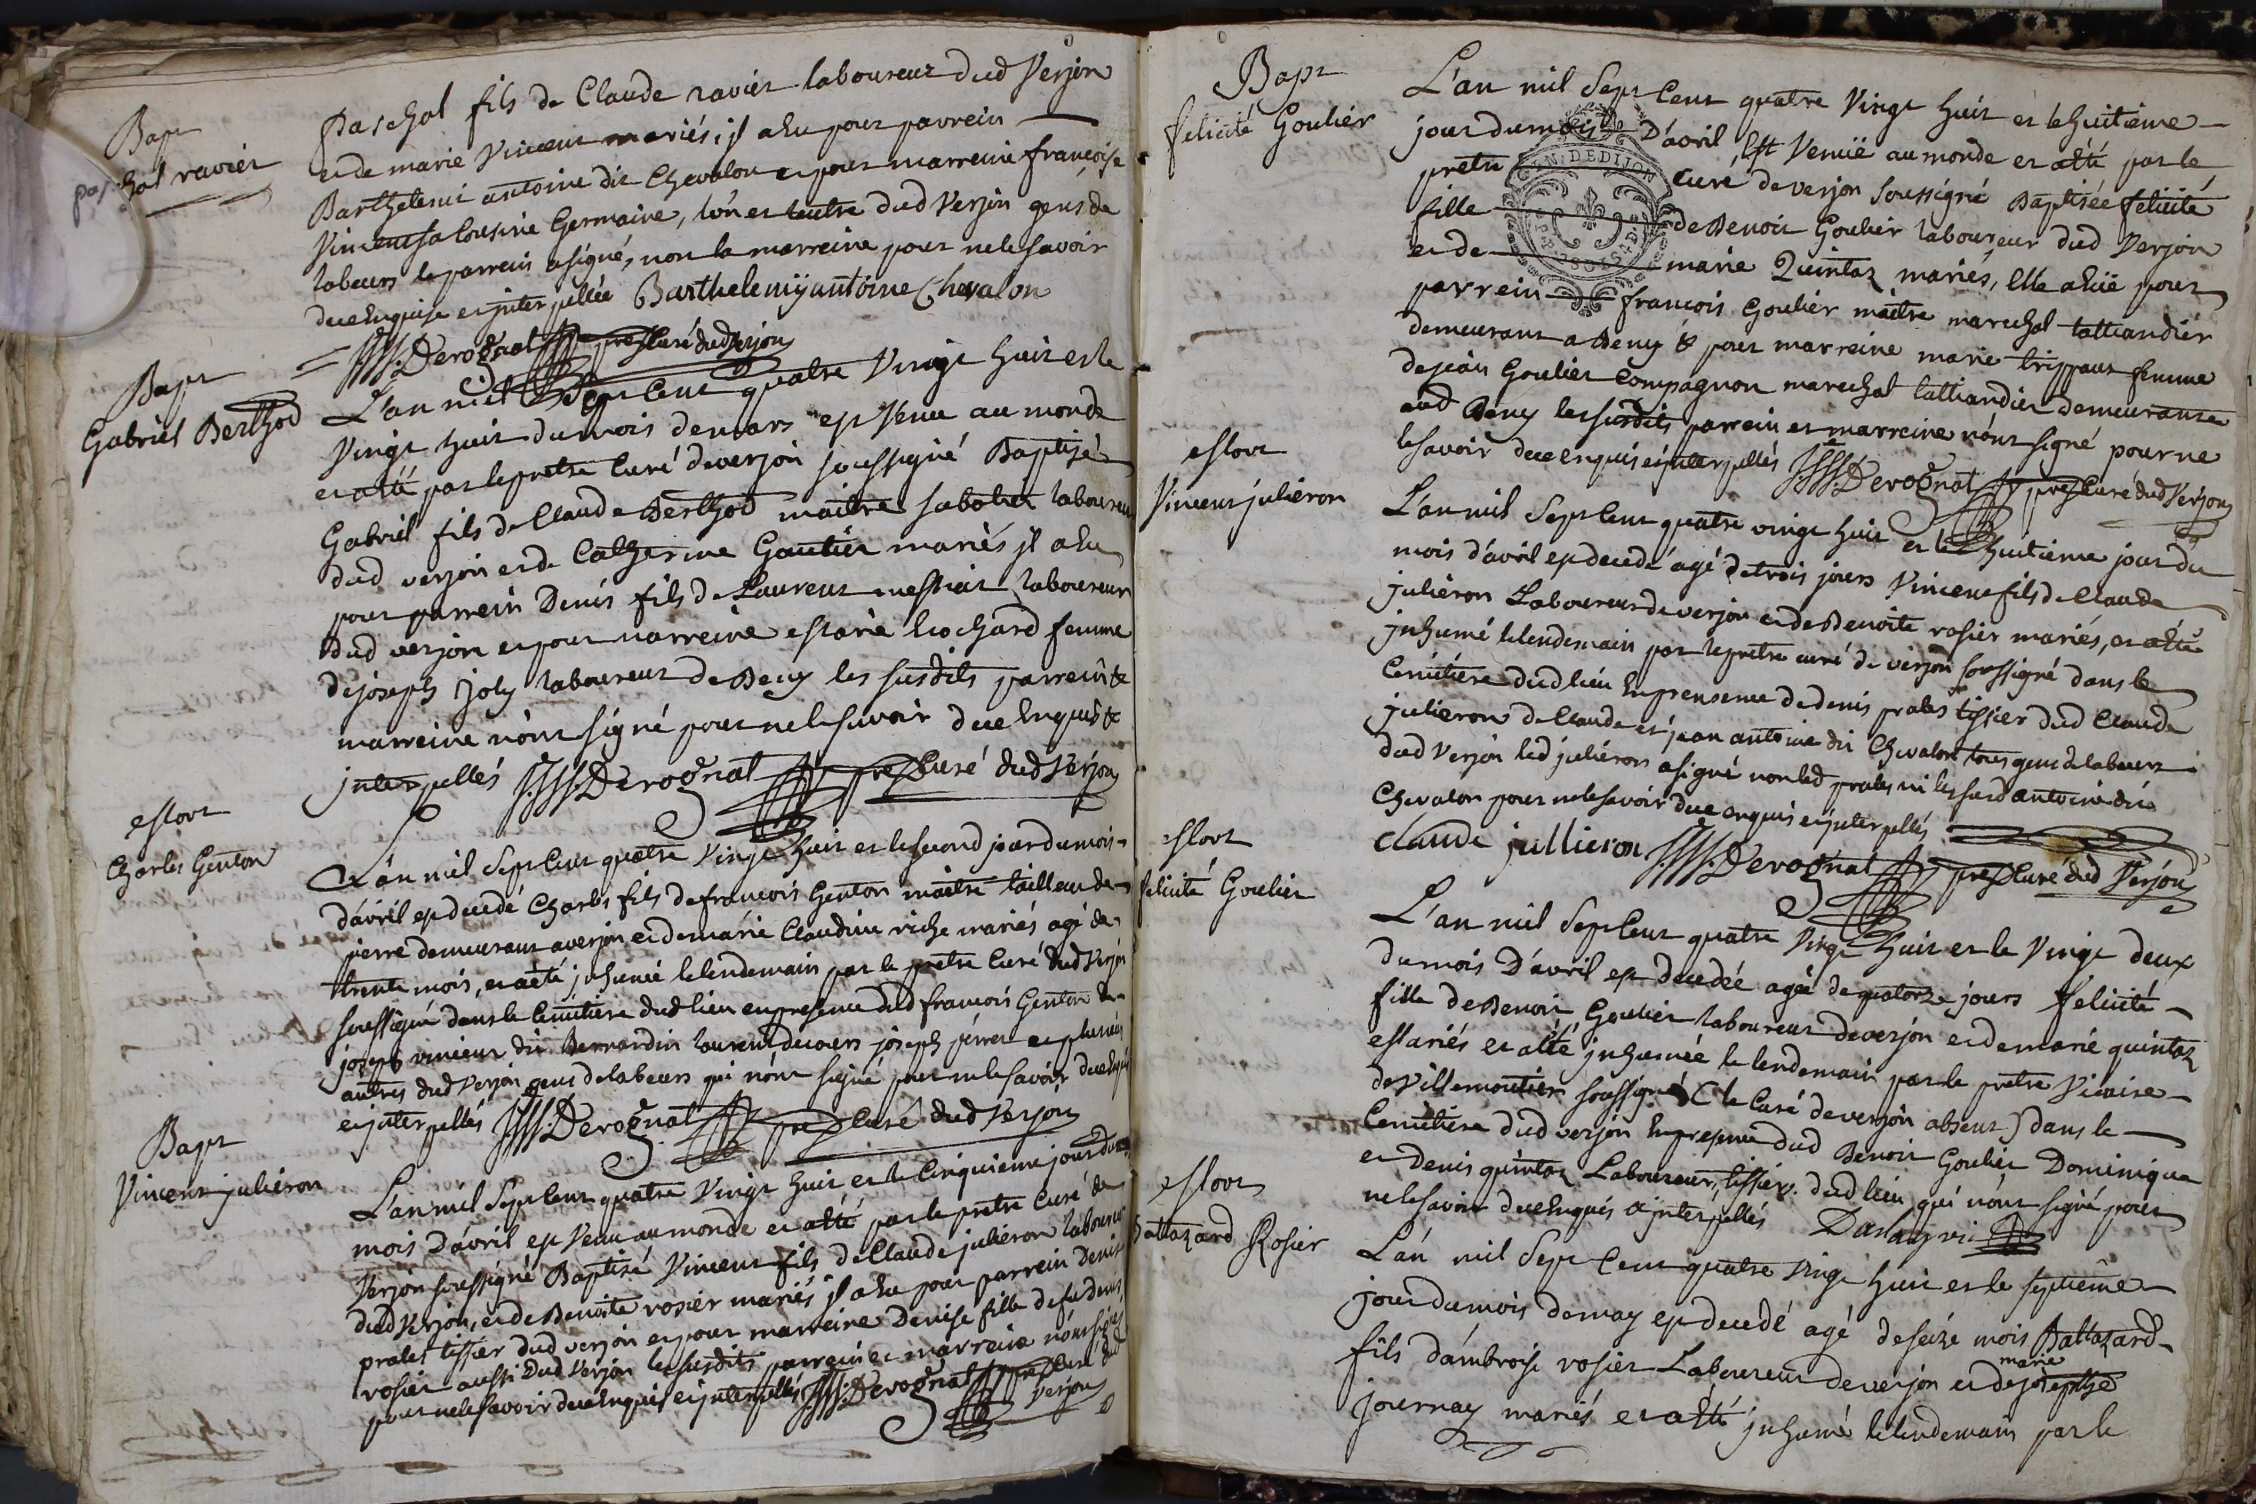 Bapt
paschal ravier
paschal fils de Claude ravier laboureur dud Verjon
et de marie Vincent mariés; il a eu pour parrein
Barthelemi antoine dit Chevalon et pour marreine françoise
Vincent sa Cousine Germaine, l'ún et l'autre dud Verjon gens de
labeurs le parrein a signé, non la marreine pour ne le savoir
de ce Enquise et interpellée Barthelemÿ antoine Chevalon
Derognat pre Curé dud Verjon
Bapt
Gabriel Berthod
L'an mil Sept Cent quatre Vingt huit et le
Vingt huit du mois de mars est Venu au monde
et a été par le prêtre Curé de verjon soussigné Baptisé
Gabriel fils de Claude Berthod maître sabotier laboureur
dud verjon et de Catherine Gautier mariés il a eu
pour parrein Denis fils de Laurent messiat laboureur
dud verjon et pour marreine Marie Cochard femme
de joseph Joly laboureur de Beny les susdits parrein &
marreine n'ont signé pour ne le savoir de ce Enquis &
interpellés Derognat pre Curé dud Verjon
Mort
Charles Genton
L'an mil sept Cent quatre Vingt huit et le second jour du mois
d'avril est decedé Charles fils de françois Genton maître tailleur de
pierre demeurant a verjon et de marie Claudine riche mariés agé de
trente mois, et a été inhumé le lendemain par le prêtre Curé dud Verjon
soussigné dans le Cimitiere dud lieu en presence dud françois Genton de
joseph vincent dit Bernardin laurent decours joseph perret et plusieurs
autres dud Verjon gens de labeurs qui n'ont signé pour ne le savoir de ce Enquis
et interpellés Derognat pre Curé dud Verjon
Bapt
Vincent juliéron
L'an mil Sept Cent quatre Vingt huit et le Cinquieme jour du
mois D'avril est Venu au monde et a été par le prêtre Curé de
Verjon soussigné Baptisé Vincent fils de Claude juliéron laboureur
dud Verjon, et de Benoite rosier mariés il a eu pour parrein Denis
prales tissier dud verjon et pour marreine Denise fille de feu Denis
rosier aussi dud Verjon les susdits parrein et marreine n'ont signés
pour ne le savoir de ce Enquis et interpellés Derognat pre Curé dud
Verjon
Bapt
felicité Goulier
L'an mil Sept Cent quatre Vingt huit et le huitième
jour du mois D'avril Est Venuë au monde et a été par le
prêtre curé de verjon soussigné Baptisée felicité
fille de Benoit Goulier laboureur dud Verjon
et de marie Quintaz mariés, elle a eüe pour
parrein francois Goulier maître marechal tailliandiér
demeurant a Beny & pour marreine marie trippaut femme
de jean Goulier Compagnon marechal tailliandier demeurante
aud Beny les susdits parrein et marreine n'ont signé pour ne
le savoir de ce enquis et interpellés Derognat pre Curé dud Verjon
GEN. DE DIJON
Mort
Vincent juliéron
L'an mil Sept Cent quatre vingt huit et le huitieme jour du
mois d'avril est decedé agé de trois jours Vincent fils de Claude
juliéron Laboureur de verjon et de Benoite rosier mariés, et a été
inhumé le lendemain par le prêtre curé de verjon soussigné dans le
Cimitiére dud lieu En presence de denis prales tissier dud Claude
julieron de Claude et jean antoine dit Chevalon tous gens de labeurs
dud Verjon led juliéron a signé non led prales ni led antoine dit
Chevalon pour ne le savoir de ce enquis et interpellés
claude jullieron Derognat pre Curé dud Verjon
Mort
felicité Goulier
L'an mil Sept Cent quatre Vingt huit et le Vingt deux
du mois D'avril est decedée agée de quatorze jours felicité
fille de Benoit Goulier laboureur de verjon et de marie quintaz
Mariés et a été inhumée le lendemain par le prêtre Vicaire
de Villemoutier soussigné (le Curé de verjon absent) dans le
Cimitiere dud verjon En presence dud Benoit Goulier Dominique
et Denis quintaz Laboureur, tissier dud lieu qui n'ont signé pour
ne le savoir de ce Enquis & interpellés
Mort
Baltazard Rosier
L'an mil Sept Cent quatre Vingt huit et le septiême
jour du mois de may est decedé agé de seize mois Baltazard
fils d'ambroise rosier Laboureur de verjon et de marie josephte
journay mariés et a été inhumé le lendemain par le